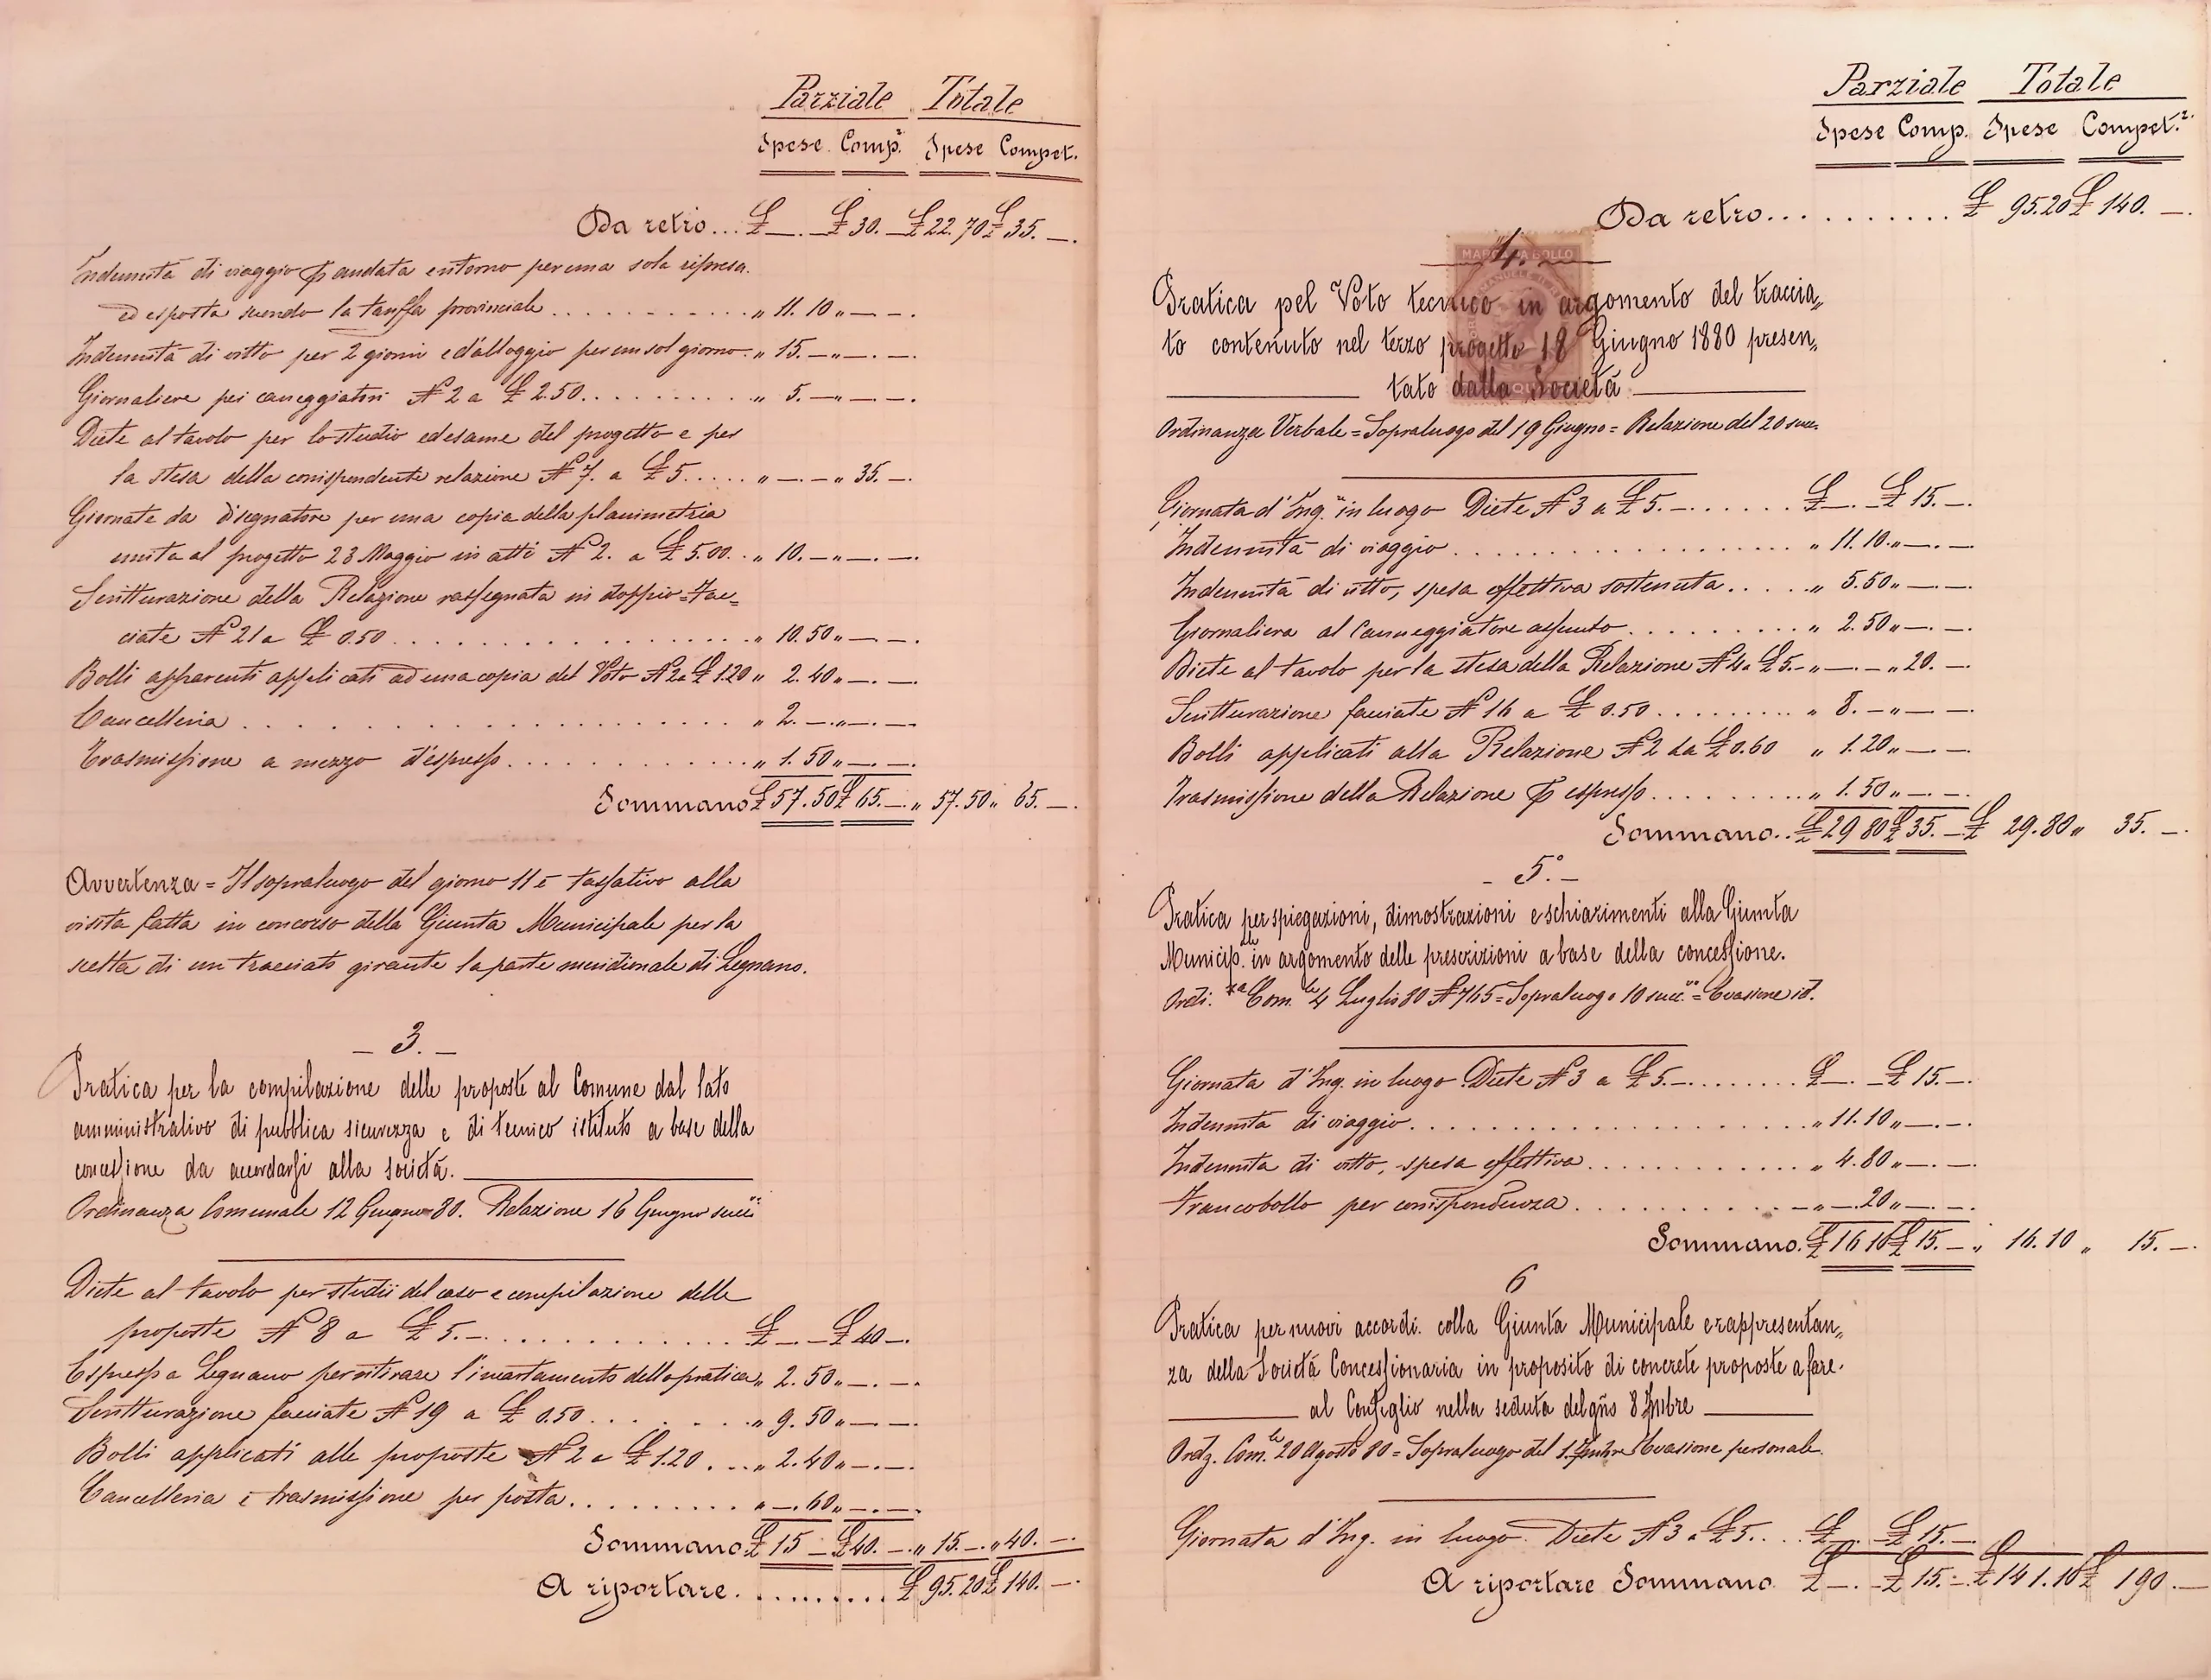 Parziale Totale
Spese Comp.ᶻ Spese Compet.
Da retro... £ —. — £ 30. — £ 22.70 £ 35. —.
Indennità di viaggio p andata e ritorno per una sola ripresa
ed esposta secondo la tariffa provinciale . . . . . . . . . . „ 11. 10 „ —. —.
Indennità di vitto per 2 giorni e d'alloggio per un sol giorno. „ 15. — „ —. —.
Giornaliere pei canneggiatori N° 2 a £ 2.50. . . . . . . . . . „ 5. — „ —. —.
Diete al tavolo per lo studio ed esame del progetto e per
la stesa della corrispondente relazione N° 7. a £ 5. . . . . „ —. — „ 35. —.
Giornate da disegnatore per una copia della planimetria
unita al progetto 23 Maggio in atti N° 2. a £ 5.00. . „ 10. — „ —. —.
Scritturazione della Relazione rassegnata in doppio = fac=
ciate N° 21 a £ 0.50 . . . . . . . . . . . . . . . . „ 10. 50 „ —. —.
Bolli apparenti applicati ad una copia del Voto N° 2 a £ 1.20 „ 2. 40 „ —. —.
Cancelleria . . . . . . . . . . . . . . . . . . . . „ 2. — „ —. —.
Trasmissione a mezzo d'espresso. . . . . . . . . . . . „ 1. 50 „ —. —.
Sommano £ 57. 50 £ 65. — „ 57. 50 „ 65. —.
Avvertenza = Il sopraluogo del giorno 11 è tassativo alla
visita fatta in concorso della Giunta Municipale per la
scelta di un tracciato girante la parte meridionale di Legnano.
— 3. —
Pratica per la compilazione delle proposte al Comune dal lato
amministrativo di pubblica sicurezza e di tecnico istituto a base della
concessione da accordarsi alla società.
Ordinanza Comunale 12 Giugno 80. Relazione 16 Giugno succ.
Diete al tavolo per studii del caso e compilazione delle
proposte N° 8 a £ 5. — . . . . . . . . . . . £ —. — £ 40 —.
Espresso a Legnano per ritirare l'incartamento della pratica „ 2. 50 „ —. —.
Scritturazione facciate N° 19 a £ 0.50. . . . . . . „ 9. 50 „ —. —.
Bolli applicati alle proposte N° 2 a £ 1.20 . . . „ 2. 40 „ —. —.
Cancelleria e trasmissione per posta. . . . . . . . . „ —. 60 „ —. —.
Sommano. £ 15 — £ 40. — „ 15. — „ 40. —.
A riportare. . . . . . . . . . £ 95.20 £ 140. —.
Parziale Totale
Spese Comp. Spese Compet.ᶻ
Da retro. . . . . . . . . . . £ 95.20 £ 140. —.
4.
MARCA DA BOLLO
Pratica pel Voto tecnico in argomento del traccia„
to contenuto nel terzo progetto 18 Giugno 1880 presen„
tato dalla Società
Ordinanza Verbale = Sopraluogo del 19 Giugno = Relazione del 20 suc.
Giornata d'Ing.ʳᵉ in luogo Diete N° 3 a £ 5. — . . . . . . £ —. — £ 15. —.
Indennità di viaggio . . . . . . . . . . . . . . . . . . „ 11. 10. „ —. —
Indennità di vitto, spesa effettiva sostenuta . . . . . „ 5. 50 „ —. —
Giornaliera al canneggiatore assunto . . . . . . . . . . „ 2. 50 „ —. —
Diete al tavolo per la stesa della Relazione N° 4 a £ 5. — „ —. — „ 20. —
Scritturazione facciate N° 16 a £ 0.50 . . . . . . . . . „ 8. — „ —. —
Bolli applicati alla Relazione N° 2 da £ 0.60 „ 1. 20 „ —. —
Trasmissione della Relazione p espresso . . . . . . . . . „ 1. 50 „ —. —.
Sommano. . £ 29 80 £ 35. — £ 29. 80 „ 35. —.
— 5.° —
Pratica per spiegazioni, dimostrazioni e schiarimenti alla Giunta
Municip.ˡᵉ in argomento delle prescrizioni a base della concessione.
Ordi.ᶻᵃ Com.ˡᵉ 4 Luglio 80 N° 765 = Sopraluogo 10 succ. = Evasione id.
Giornata d'Ing. in luogo. Diete N° 3 a £ 5. — . . . . . . . £ —. — £ 15. —.
Indennità di viaggio. . . . . . . . . . . . . . . . . . . . „ 11. 10 „ —. —.
Indennità di vitto, spesa effettiva . . . . . . . . . . . . „ 4. 80 „ —. —.
Francobollo per corrispondenza . . . . . . . . . . . — „ —. 20 „ —. —.
Sommano. £ 16 10 £ 15. — „ 16. 10 „ 15. —.
6
Pratica per nuovi accordi colla Giunta Municipale e rappresentan„
za della Società Concessionaria in proposito di concrete proposte a fare
al Consiglio nella seduta del gño 8 7mbre
Ordz. Com.ˡᵉ 20 Agosto 80 = Sopraluogo del 1. 7mbre Evasione personale.
Giornata d'Ing. in luogo. Diete N° 3 a £ 5. . . . £ —. — £ 15. —
A riportare Sommano £ —. — £ 15. — £ 141. 10 £ 190. —